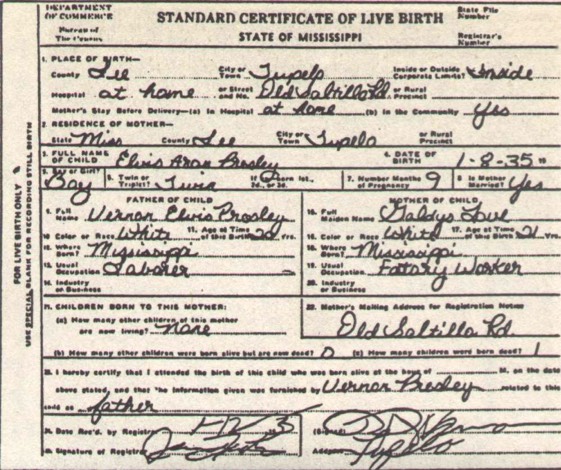 DEPARTMENT OF COMMERCE
Bureau of The Census
STANDARD CERTIFICATE OF LIVE BIRTH
STATE OF MISSISSIPPI
State File Number
Registrar's Number
1. PLACE OF BIRTH—
County Lee City or Town Tupelo Inside or Outside Corporate Limits? Inside
Hospital at home or Street and No. Old Saltillo Rd or Rural Precinct
Mother's Stay Before Delivery—(a) In Hospital at home (b) In the Community Yes
2. RESIDENCE OF MOTHER—
State Miss County Lee City or Town Tupelo or Rural Precinct
3. FULL NAME OF CHILD Elvis Aron Presley 4. DATE OF BIRTH 1-8-35 19
Boy or Girl? Boy 5. Twin or Triplet? Twin If born 1st, 2d., or 3d. 7. Number Months of Pregnancy 9 8. Is Mother Married? Yes
FATHER OF CHILD
9. Full Name Vernon Elvis Presley
10. Color or Race White 11. Age at Time of this Birth 20 Yrs.
12. Where Born? Mississippi
13. Usual Occupation Laborer
14. Industry or Business
MOTHER OF CHILD
15. Full Maiden Name Gladys Love
16. Color or Race White 17. Age at Time of this Birth 21 Yrs.
18. Where Born? Mississippi
19. Usual Occupation Factory Worker
20. Industry or Business
21. CHILDREN BORN TO THIS MOTHER:
(a) How many other children of this mother are now living? None
22. Mother's Mailing Address for Registration Notice
Old Saltillo Rd
(b) How many other children were born alive but are now dead? 0 (c) How many children were born dead? 1
23. I hereby certify that I attended the birth of this child who was born alive at the hour of M. on the date
above stated, and that the information given was furnished by Vernon Presley related to this
child as father
24. Date Rec'd. by Registrar (Signed)
25. Signature of Registrar Address Tupelo
FOR LIVE BIRTH ONLY
USE SPECIAL BLANK FOR RECORDING STILL BIRTH